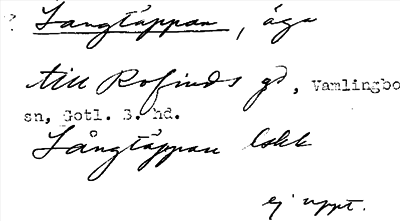 ? Långtäppan, äga
till Rofinds gd, Vamlingbo
sn, Gotl. S. hd.
Långtäppan lokk
ej uppt.